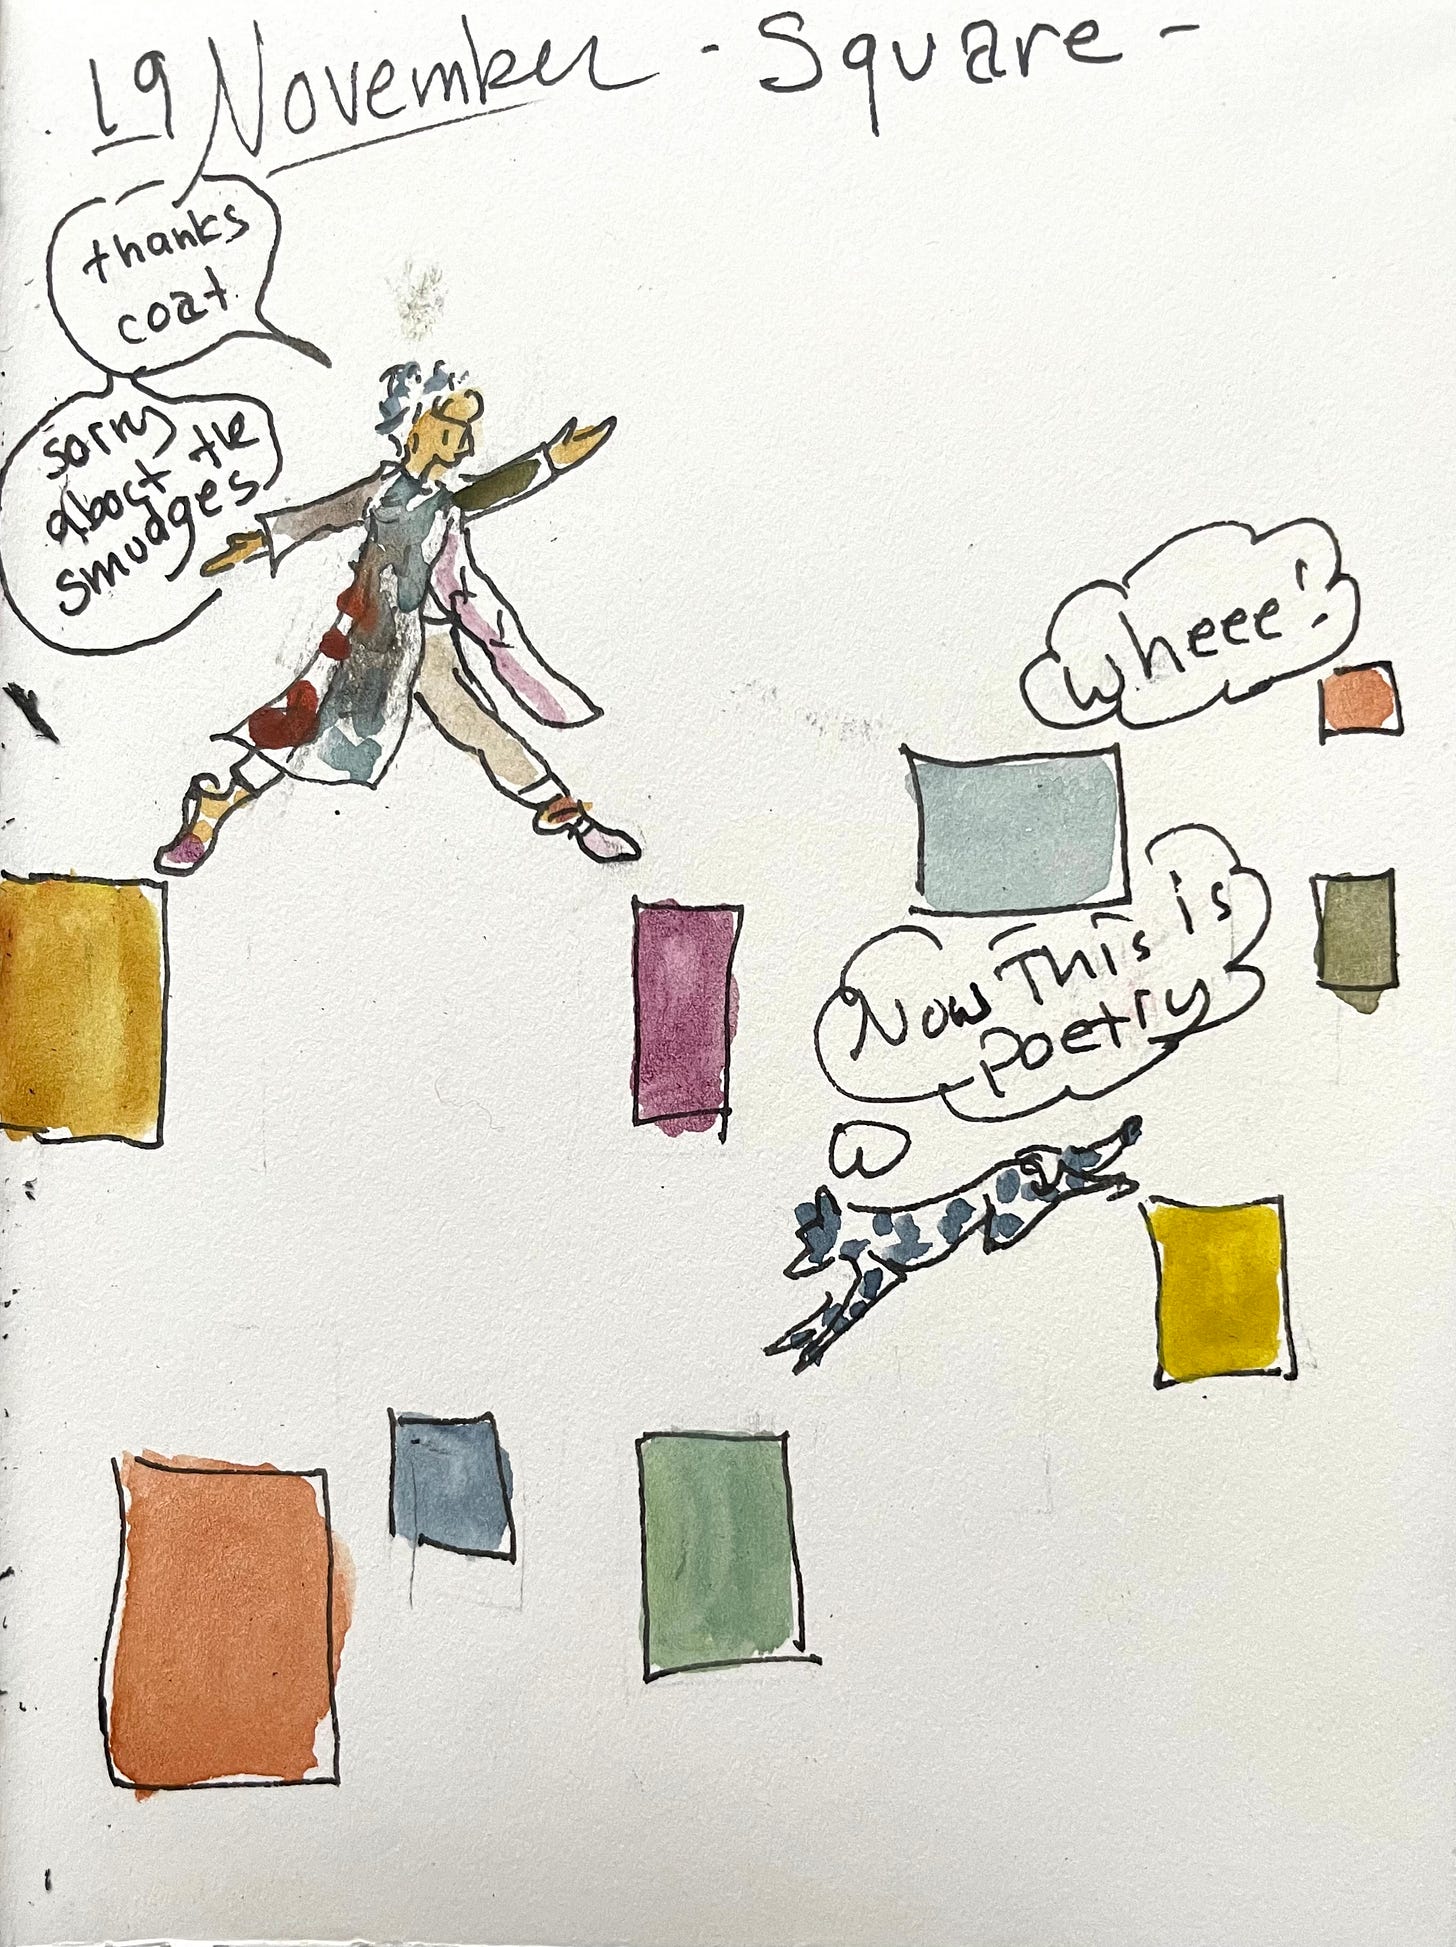 19 November - Square -
thanks
coat
sorry
about the
smudges
Wheee!
Now This is
Poetry